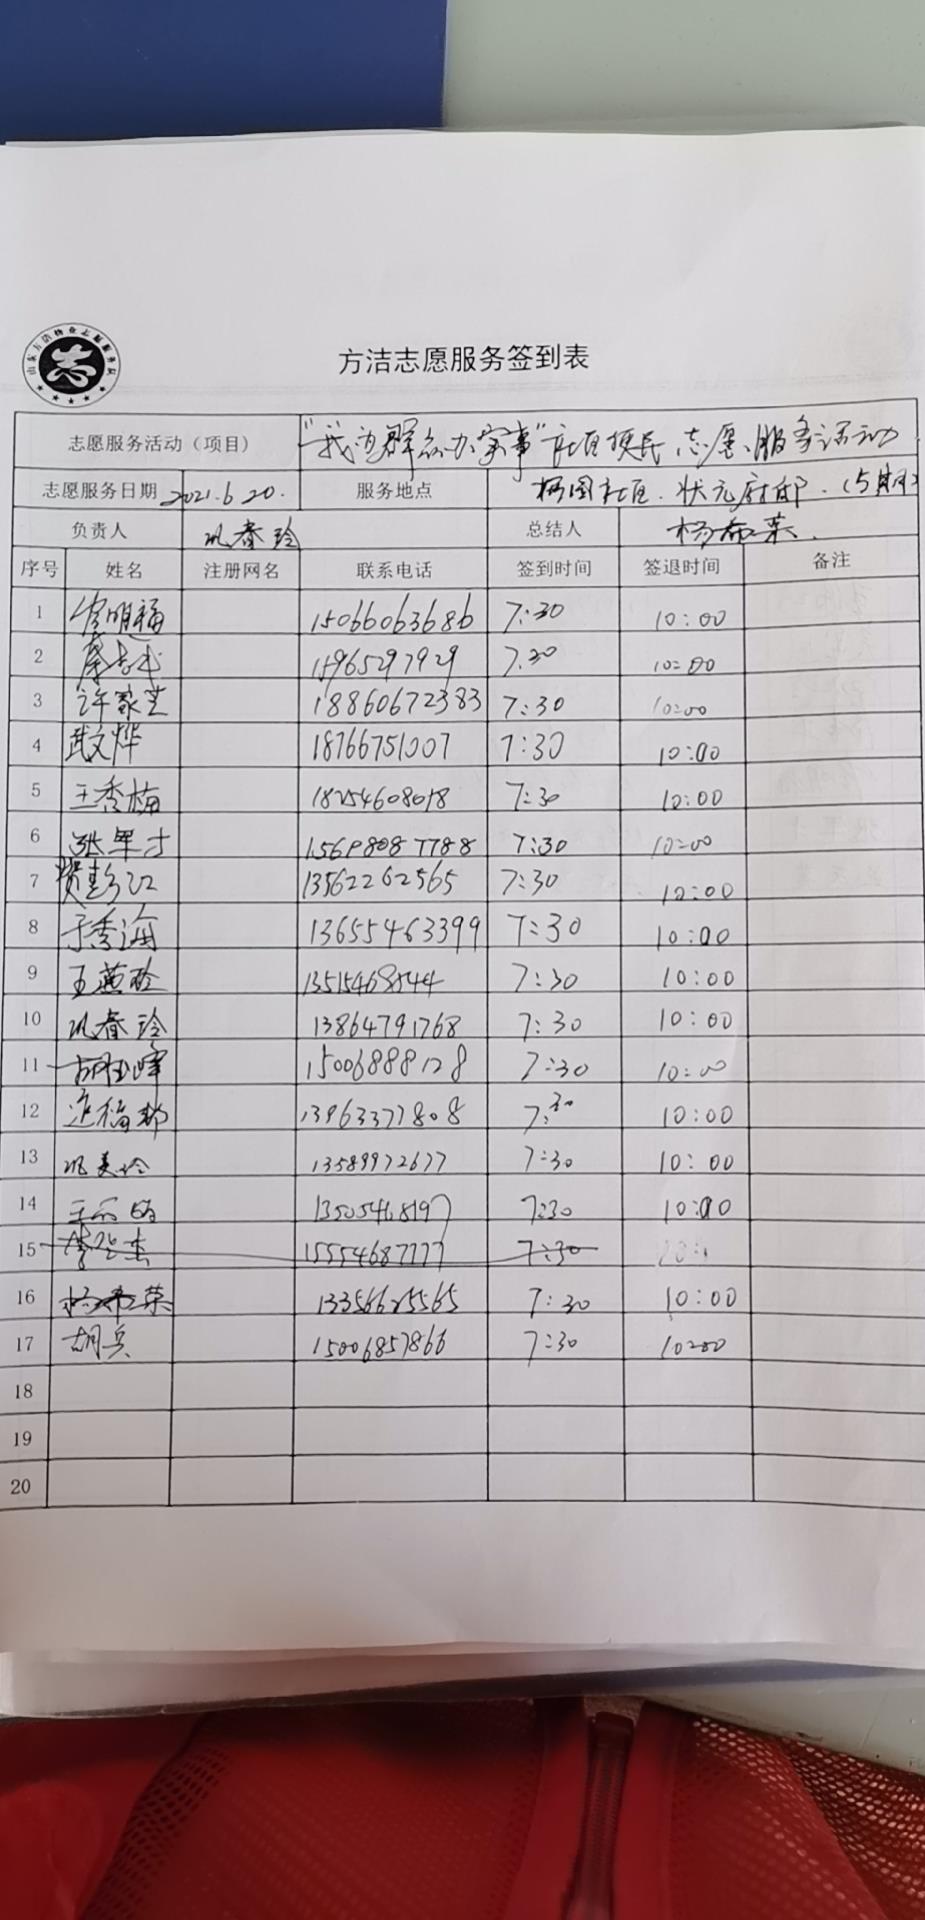 山东方洁物业志愿服务队
志
方洁志愿服务签到表
志愿服务活动（项目） "我为群众办实事"社区便民志愿服务活动
志愿服务日期 2021.6.20. 服务地点 杨园社区.状元府邸.(5期)
负责人 巩春玲 总结人 杨希荣.
序号 姓名 注册网名 联系电话 签到时间 签退时间 备注
1 明福 15066063686 7:30 10:00
2 15965297929 7:30 10:00
3 许家芝 18860672383 7:30 10:00
4 武文烨 18766751007 7:30 10:00
5 王秀梅 18254608018 7:30 10:00
6 张军才 15698087788 7:30 10:00
7 贾彭江 13562262565 7:30 10:00
8 于秀海 13655463399 7:30 10:00
9 王燕玲 7:30 10:00
10 巩春玲 13864791768 7:30 10:00
11 胡玉峰 15006888128 7:30 10:00
12 13963377808 7:30 10:00
13 巩美玲 13589972677 7:30 10:00
14 王 13505468197 7:30 10:00
15 15554687777 7:30
16 杨希荣 13356625565 7:30 10:00
17 胡兵 15006857866 7:30 10:00
18
19
20